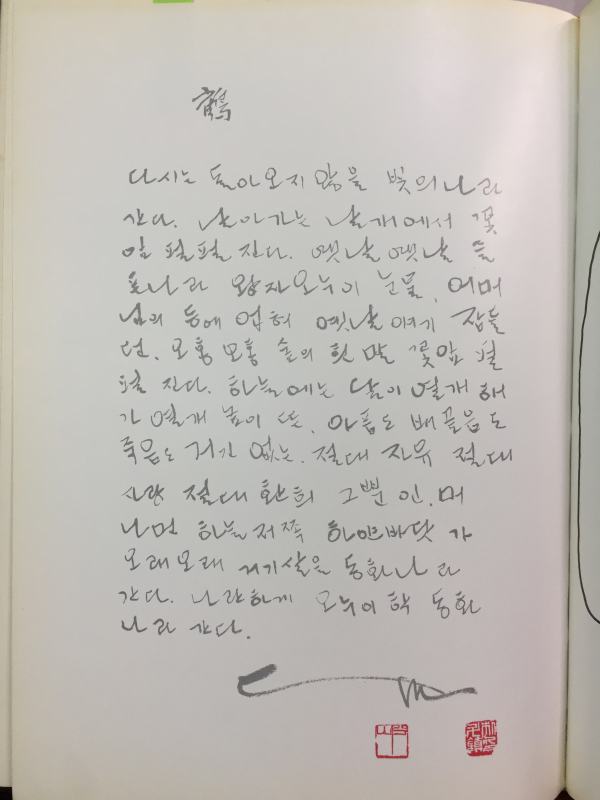 鶴
다시는 돌아오지 않을 빛의 나라
간다. 날아가는 날개에서 꽃
잎 펄펄 진다. 옛날 옛날 슬
픈 나라 왕자 오누이 눈물, 어머
님의 등에 업혀 옛날 얘기 잠들
던. 모롱 모롱 숲의 흰 말 꽃잎 펄
펄 진다. 하늘에는 달이 열개 해
가 열개 높이 뜬, 아픔도 배고픔도
죽음도 거긴 없는. 절대 자유 절대
사랑 절대 환희 그뿐인, 머
나먼 하늘 저쪽 하얀 바닷가
오래오래 거기 살을 동화나라
간다. 나란하게 오누이 학 동화
나라 간다.